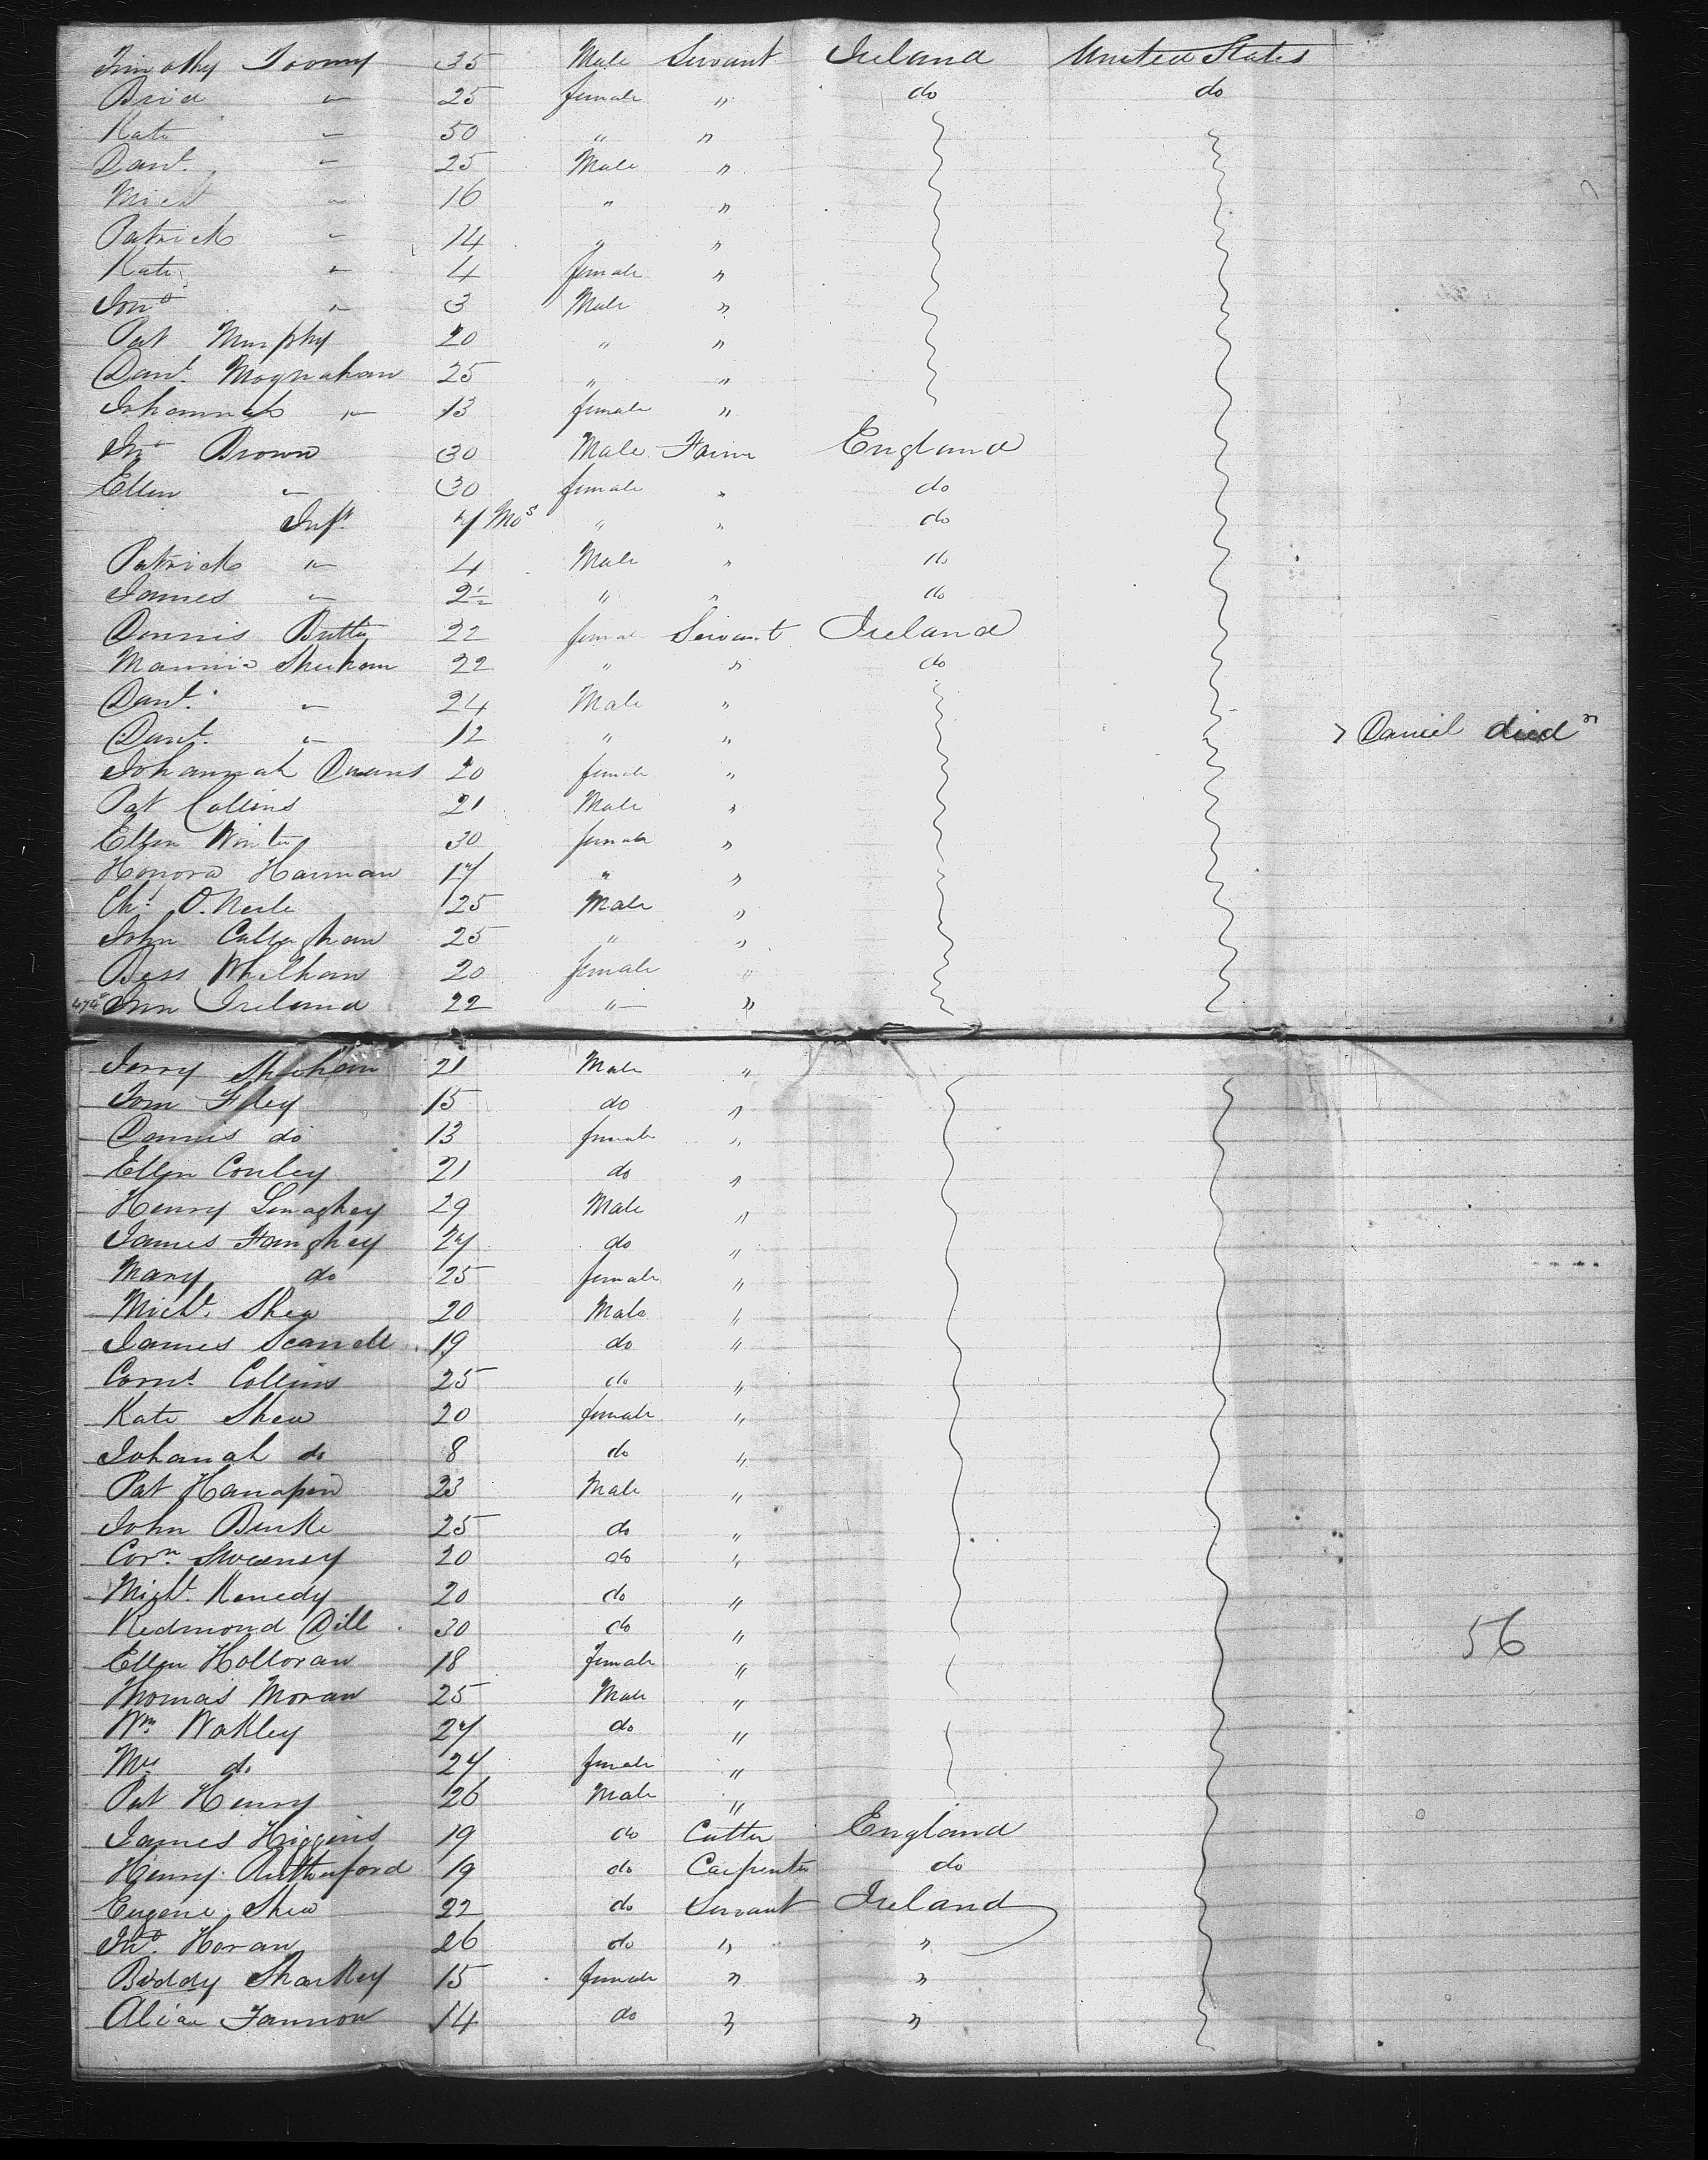 Timothy Toomy 35 Male Servant Ireland United States
Brid " 25 female " do do
Kate " 50 " "
Danl. " 25 Male "
Michl " 16 " "
Patrick " 14 " "
Kate " 4 female "
Jno " 3 Male "
Pat Murphy 20 " "
Danl. Moynahan 25 " "
Johannah " 13 female "
Jno Brown 30 Male Farmr England
Ellen " 30 female " do
Inft. 7 Mos " " do
Patrick " 4 Male " do
James " 2½ " " do
Dennis Butter 22 female Servant Ireland
Mannie Sheehan 22 " " do
Danl. " 24 Male "
Danl. " 12 " " Daniel died "
Johannah Owens 20 female "
Pat Collins 21 Male "
Ellen Winter 30 female "
Honora Hannan 17 " "
Chs. O.Neile 25 Male "
John Callaghan 25 " "
Bess Whelhan 20 female "
474 Ann Ireland 22 " "
Jerry Sheehan 21 Male "
Tom Fley 15 do "
Dannis do 13 female "
Ellen Conley 21 do "
Henry Lenaghey 29 Male "
James Faughey 27 do "
Mary do 25 female "
Michl. Shea 20 Male "
James Scannell 19 do "
Corns. Collins 25 do "
Kate Shea 20 female "
Johanah do 8 do "
Pat Hanafin 23 Male "
John Burke 25 do "
Corn. Sweeney 20 do "
Michl. Kenedy 20 do "
Redmond Dill 30 do " 56
Ellen Holloran 18 female "
Thomas Moran 25 Male "
Wm. Wakley 27 do "
Mrs do 27 female "
Pat Henry 26 Male "
James Higgins 19 do Cutter England
Henry Rutherford 19 do Carpenter do
Eugene Shea 22 do Servant Ireland
Jno. Horan 26 do " "
Biddy Sharkey 15 female " "
Alice Fannon 14 do " "